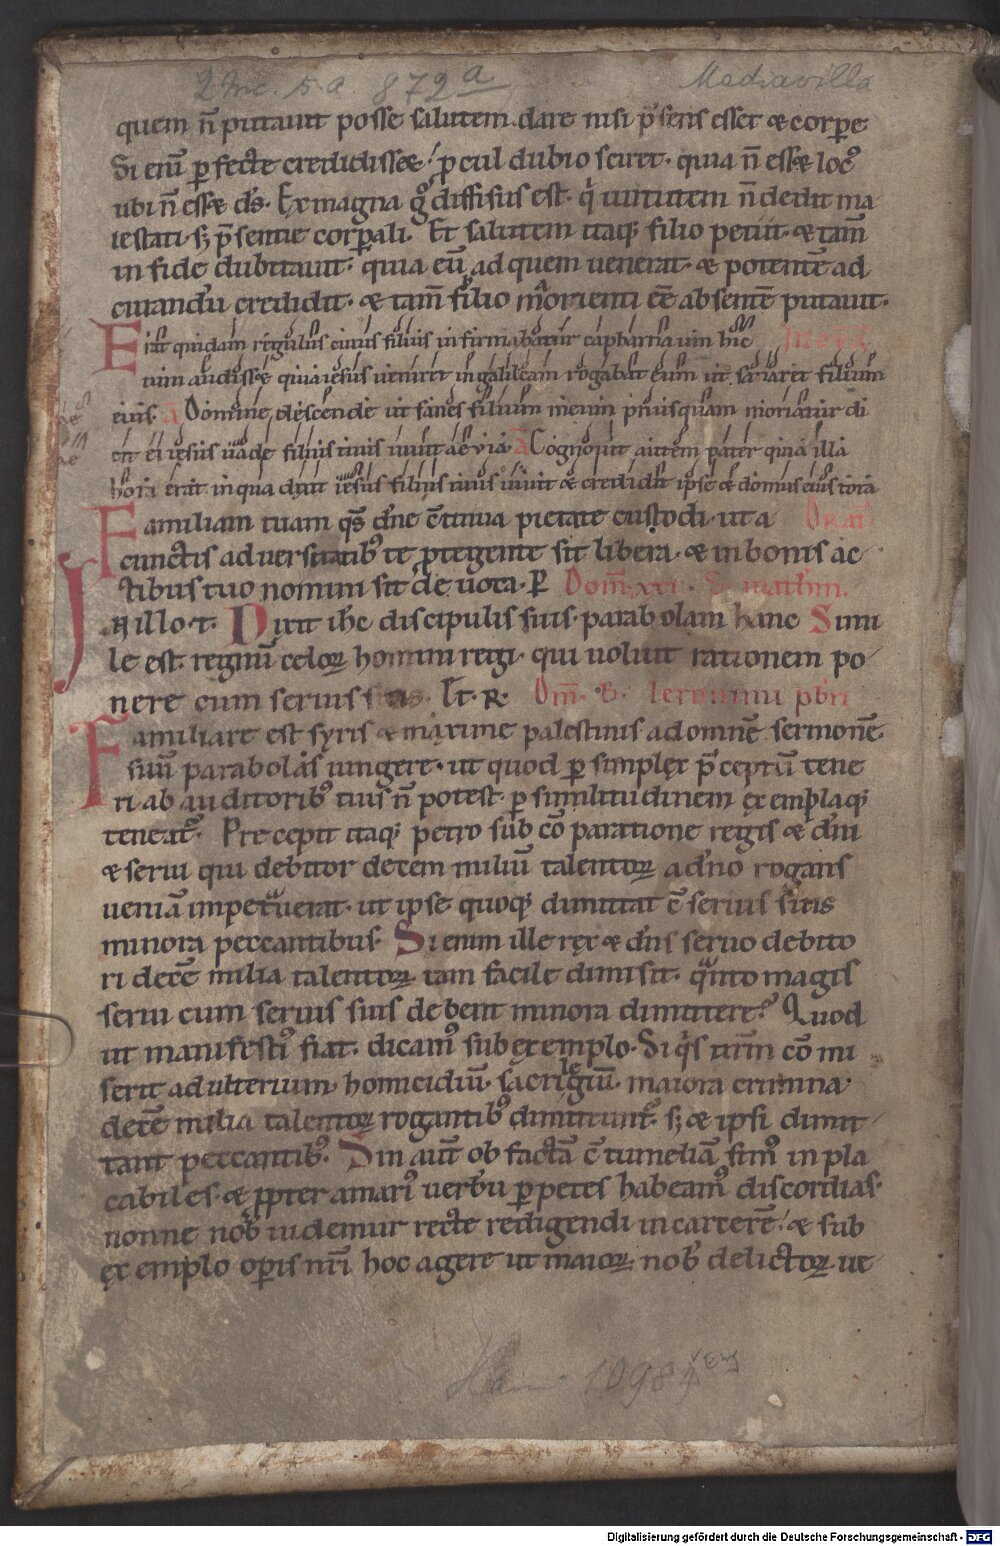 2 Inc. s.a. 872ᵃ Mediavilla
quem n̄ putauit posse salutem dare nisi p̄sens esset & corpe
Si eni᷒ ꝑfecte credidisset, ꝓcul dubio sciret. quia n̄ esset loc᷒
ubi n̄ esset ds̄. Ex magna gͦ diffisus est. qͥ uirtutem n̄ dedit ma
iestati. sꝫ p̄sentie corꝑali. Et salutem itaqꝫ filio petiit. & tam̄
in fide dubitauit. quia eū ad quem uenerat. & potentē ad
curandū credidit. & tam̄ filio morienti eē absentē putauit.
Erat quidam regulus cuius filius infirmabatur capharnaum hic
cum audisset quia iesus ueniret in galileam rogabat eum ut sanaret filium
eius. A Domine descende ut sanes filium meum priusquam moriatur di
cit ei iesus uade filius tuus uiuit aeuia. A Cognouit autem pater quia illa
hora erat in qua dixit iesus filius tuus uiuit & credidit ipse & domus eius tota
Familiam tuam qs̄ dn̄e c̄tinua pietate custodi. ut a Orat̄
cunctis aduersitatibꝰ te ꝓtegente sit libera. & in bonis ac
tibus tuo nomini sit deuota. P̄ Dom̄ xxi. S. mathm̄.
In illo t. Dixit ihc̄ discipulis suis. parabolam hanc Simi
le est regnū celoꝝ homini regi. qui uoluit rationem po
nere cum seruis suis. Et R. Om̄. b. Ieronimi pbr̄i
Familiare est syris & maxime palestinis. ad omnē sermonē
suū parabolas iungere. ut quod ꝑ simplex p̄ceptū tene
ri ab auditoribꝰ eius n̄ potest. ꝑ similitudinem exemplaqꝫ
teneatᷣ. Precepit itaqꝫ petro sub cōparatione regis & dn̄i
& serui qui debitor decem miliū talentoꝝ a dn̄o rogans
ueniā impetᷓuerat. ut ipse quoqꝫ dimittat c̄seruis suis
minora peccantibus. Si enim ille rex & dn̄s seruo debito
ri decē milia talentoꝝ tam facile dimisit. qͣnto magis
serui cum seruis suis debent minora dimittere? Quod
ut manifestiꝰ fiat. dicamꝰ sub exemplo. Si qͥs nr̄m cōmi
serit adulterium. homicidiū. sacrilegiū. maiora crimina
decē milia talentoꝝ rogantibꝰ dimittuntᷣ. sꝫ & ipsi dimit
tant peccantibꝰ. Sin aut̄ ob factā c̄tumeliā simꝰ inpla
cabiles. & ꝓpter amarū uerbū ꝑpetes habeamꝰ discordias.
nonne nob̄ uidemur recte redigendi in carcerē. & sub
exemplo oꝑis nr̄i hoc agere ut maioꝝ nob̄ delictoꝝ ue
Hain 10984
Digitalisierung gefördert durch die Deutsche Forschungsgemeinschaft - DFG